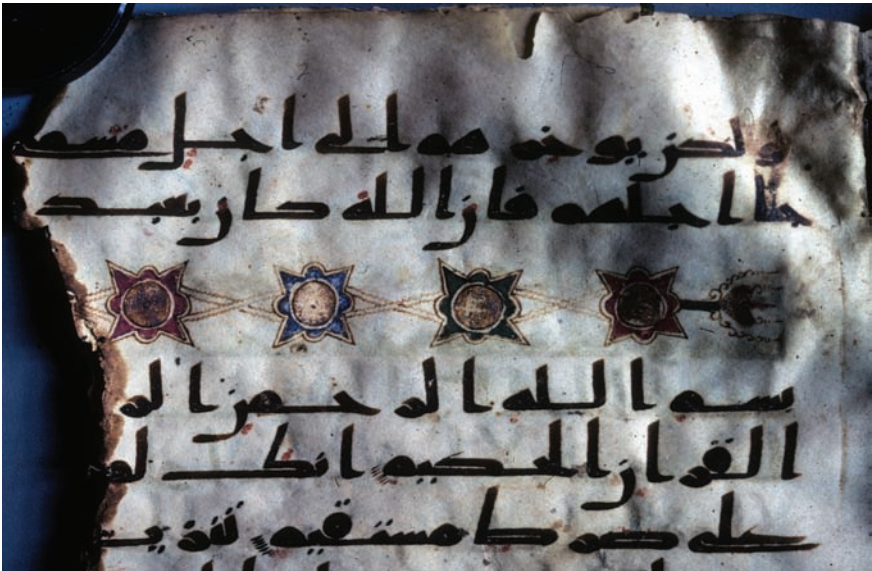 ولكن يوخرهم الى اجل مسمى
جا اجلهم فان الله كان بعبد
بسم الله الرحمن الر
القران الحكيم انك لم
على صرط مستقيم تنزيل